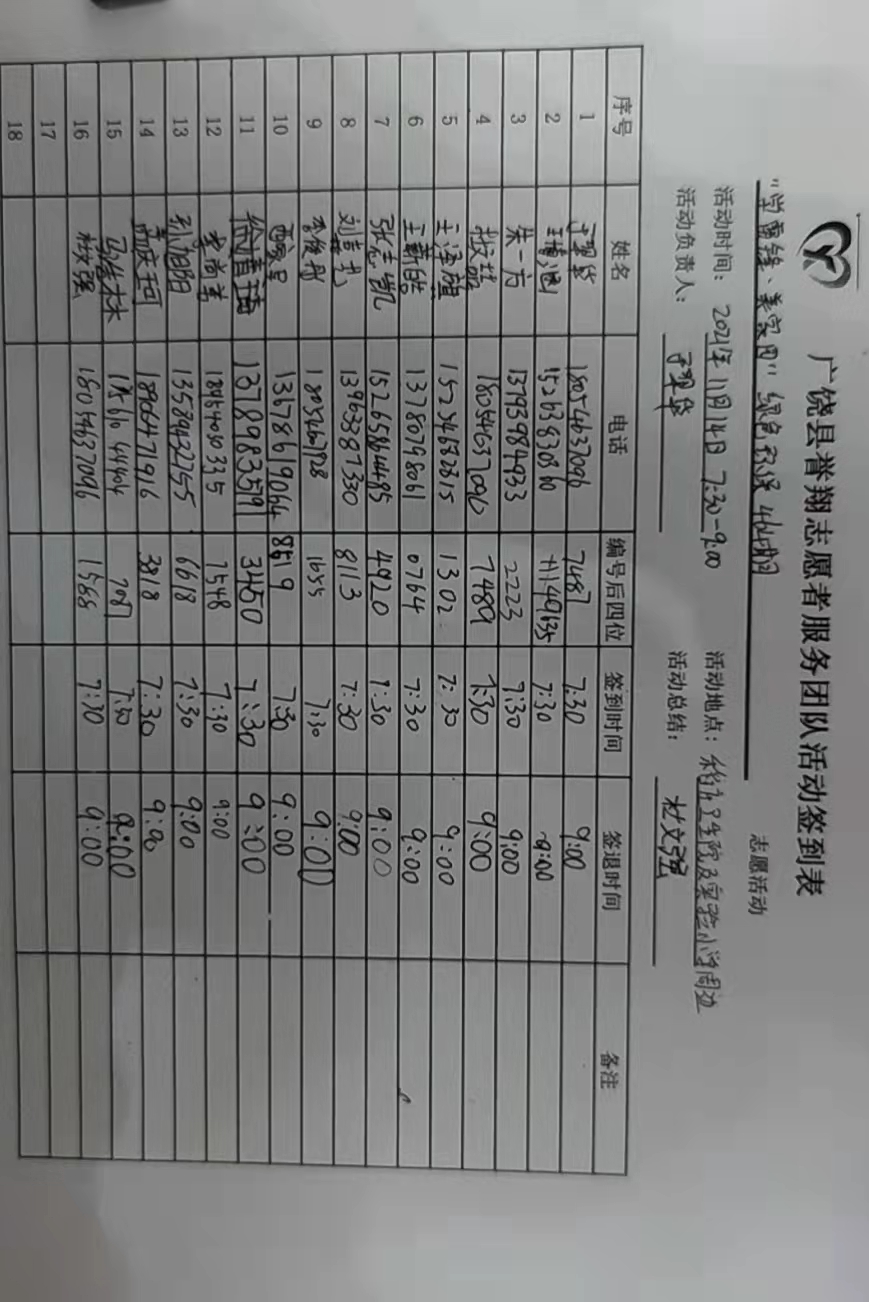 广饶县誉翔志愿者服务团队活动签到表
"学雷锋、美家园"绿色环保 志愿活动
活动时间: 2021年11月14日 7:30-9:00 活动地点: 稻庄卫生院及实验小学周边
活动负责人: 活动总结: 杜文强
序号 姓名 电话 编号后四位 签到时间 签退时间 备注
1 18054637096 7487 7:30 9:00
2 15263830860 7:30 9:00
3 朱一方 13793984933 2223 7:30 9:00
4 18054637096 7489 7:30 9:00
5 王泽旗 15254682815 1302 7:30 9:00
6 王新皓 13780798061 0764 7:30 9:00
7 张志凯 15265864485 4920 7:30 9:00
8 刘 13963387330 8113 7:30 9:00
9 李俊彤 18054607928 1655 7:30 9:00
10 13678619064 8519 7:30 9:00
11 徐 3450 7:30 9:00
12 李尚羊 18954080335 7548 7:30 9:00
13 孙旭阳 13589432755 6618 7:30 9:00
14 18906471916 3818 7:30 9:00
15 马佳林 7087 7:30 9:00
16 杜文强 18054637096 1566 7:30 9:00
17
18